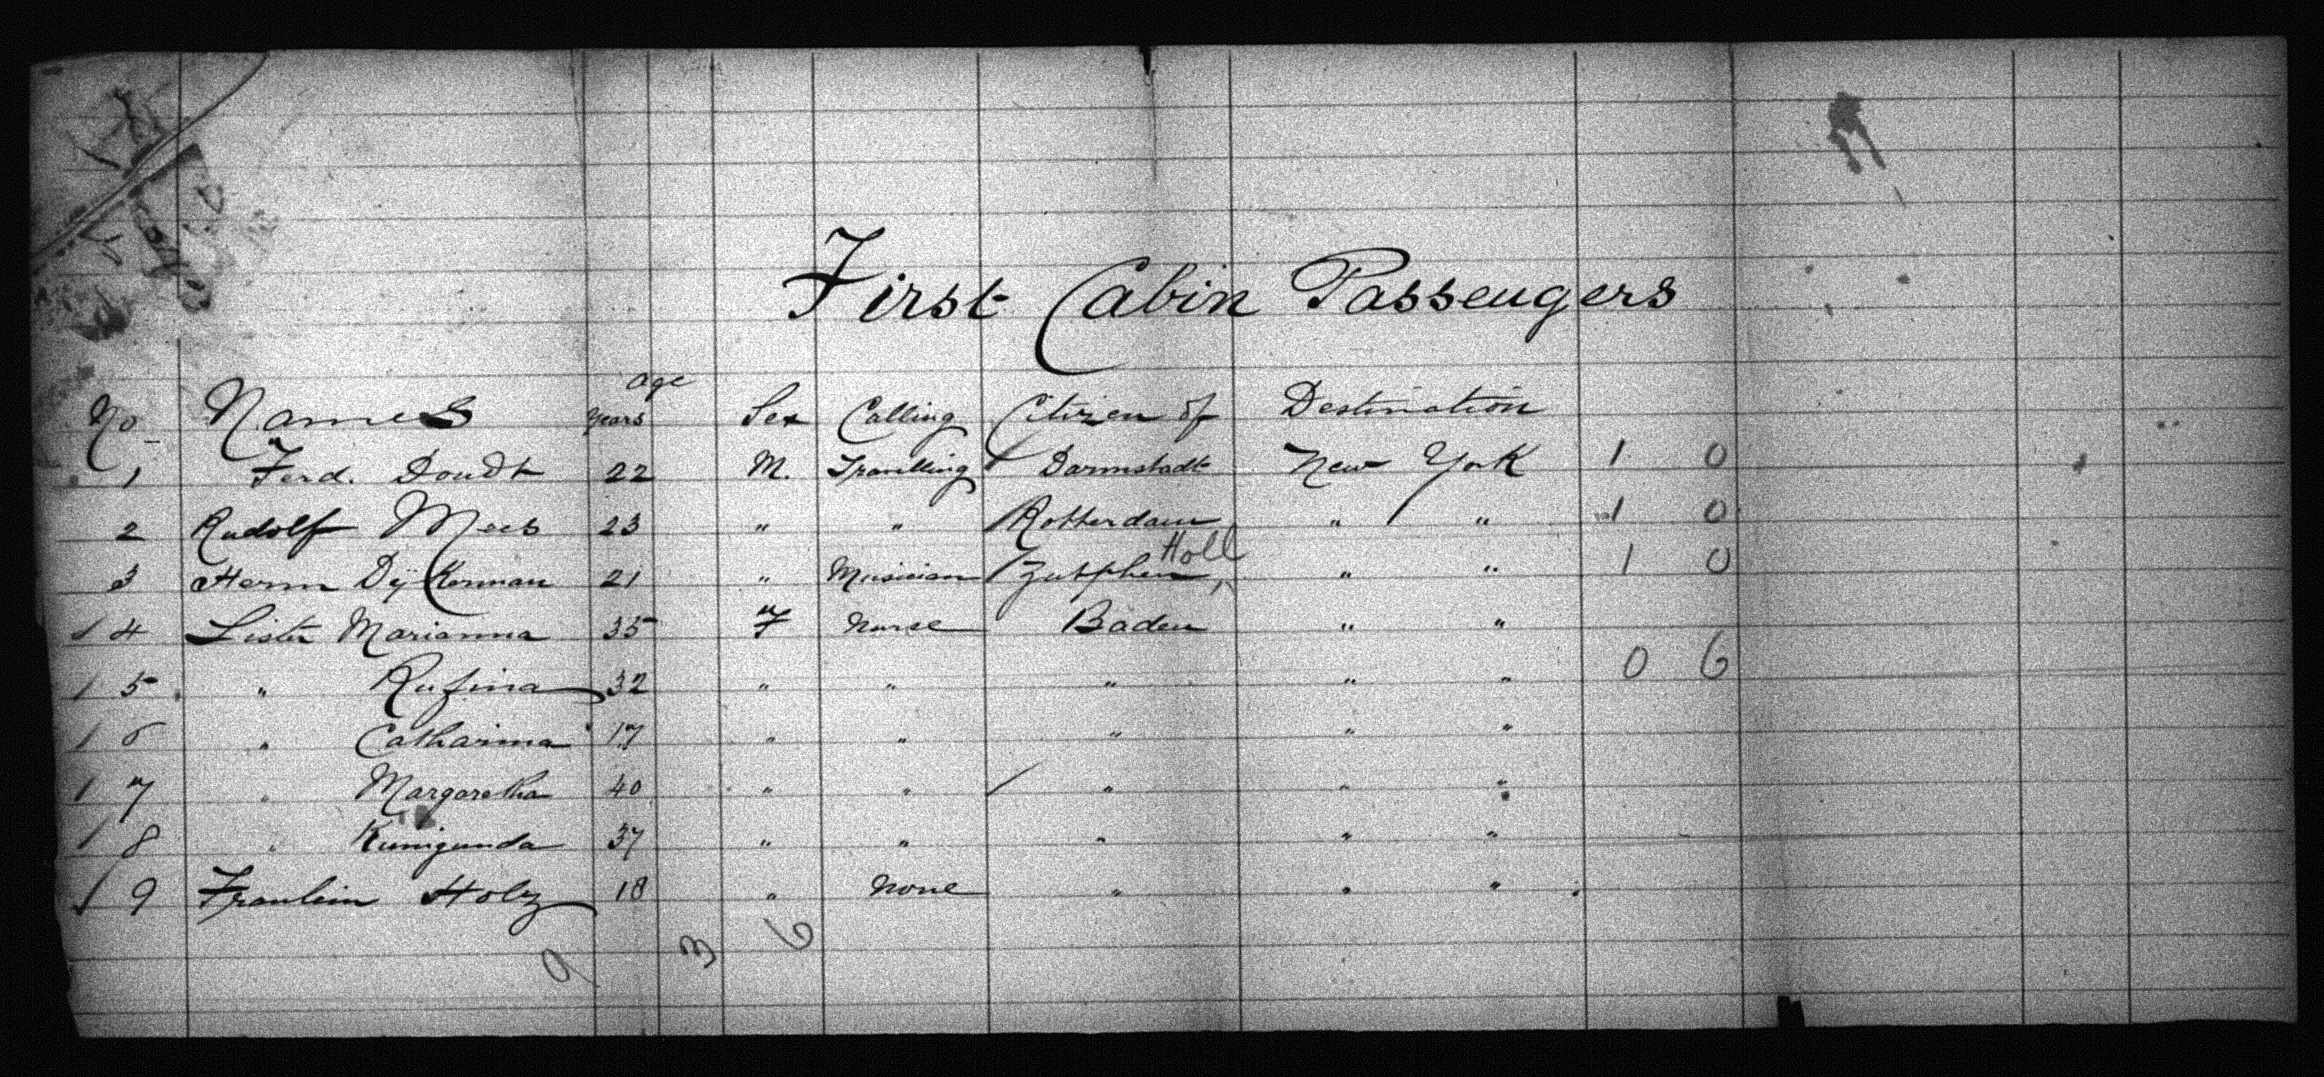 First Cabin Passengers
age
No Names years Sex Calling Citizen of Destination
1 Ferd. Doudt 22 M. Travelling Darmstadt New York 1 0
2 Rudolf Mees 23 " " Rotterdam " " 1 0
Holl
3 Herm Dÿkerman 21 " Musician Zutphen, " " 1 0
1 4 Lister Marianna 35 F Nurse Baden " "
1 5 " Rufina 32 " " " " " 0 6
1 6 " Catharina 17 " " " " "
1 7 " Margaretha 40 " " " " "
1 8 " Kunigunda 37 " " " " "
1 9 Fraulein Holz 18 " None " " "
9 3 6